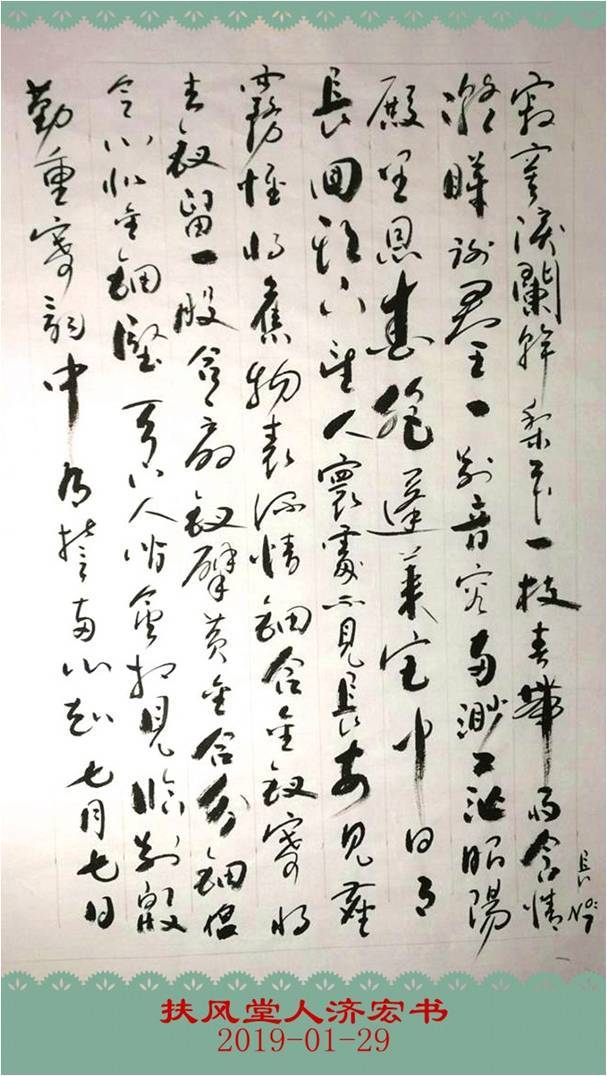 寂寞淚闌幹梨花一枝春帶雨含情
凝睇謝君王一别音容兩渺茫昭陽
殿里恩愛絶蓬萊宫中日月
長回頭下望人寰處不見長安見塵
霧惟將舊物表深情鈿合金釵寄將
去釵留一股合一扇釵擘黃金合分鈿但
令心似金鈿堅天上人間會相見臨别殷
勤重寄詞中有誓兩心知七月七日
長 No:7
扶风堂人济宏书
2019-01-29